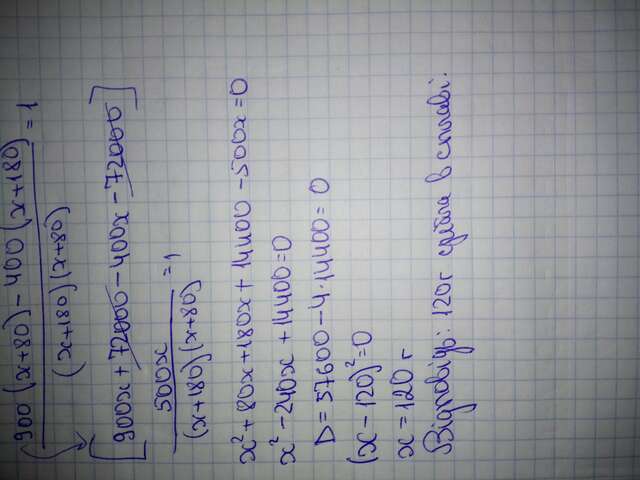 900(x+80)-400(x+180)
(x+180)(x+80) =1
[900x+72000-400x-72000]
500x
(x+180)(x+80) =1
x²+80x+180x+14400-500x=0
x²-240x+14400=0
D=57600-4·14400=0
(x-120)²=0
x=120 г
Відповідь: 120г срібла в сплаві.